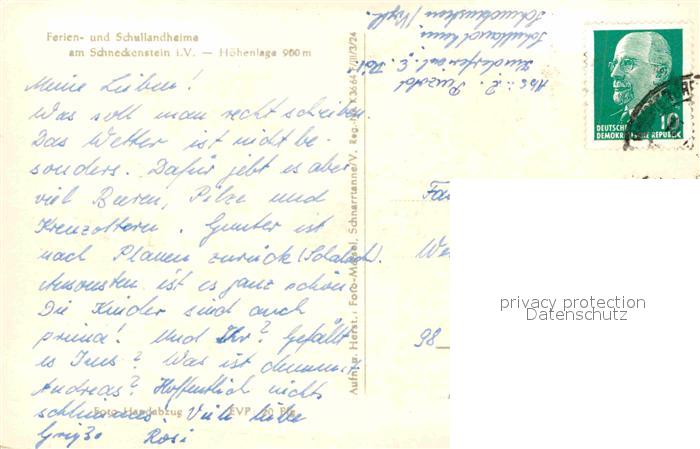 Ferien- und Schullandheime
am Schneckenstein i.V. — Höhenlage 900 m
Meine Lieben!
Was soll man recht schreiben.
Das Wetter ist nicht be-
sonders. Dafür gibt es aber
viel Beeren, Pilze und
Kreuzottern. Gunter ist
nach Plauen zurück
Ansonsten ist es ganz schön.
Die Kinder sind auch
prima! Und Ihr? Gefällt
es Ines? Was ist denn mit
Andreas? Hoffentlich nichts
schlimmes! Viele liebe
Grüße Rosi
Foto-Handabzug EVP
Aufn. u. Herst.: Foto-Meisel, Schnarrtanne/V. Reg.-Nr.
Abs.:
Schullandheim
Schneckenstein / Vogtl.
DEUTSCHE
DEMOKRATISCHE REPUBLIK
10
Fa
We
98
privacy protection
Datenschutz